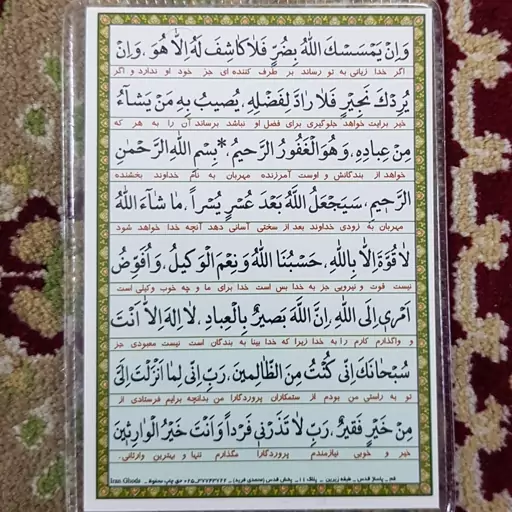 وَاِنْ يَمْسَسْكَ اللّٰهُ بِضُرٍّ فَلاٰ كَاشِفَ لَهُ اِلاّٰ هُوَ ، وَاِنْ
اگر خدا زیانی به تو رساند بر طرف کننده ای جز خود او ندارد و اگر
يُرِدْكَ بِخَيْرٍ فَلاٰ رٰادَّ لِفَضْلِهِ ، يُصيبُ بِهِ مَنْ يَشٰآءُ
خیر برایت خواهد جلوگیری برای فضل او نباشد برساند آن را به هر که
مِنْ عِبادِهِ ، وَهُوَ الْغَفُورُ الرَّحيمُ ،* بِسْمِ اللّٰهِ الرَّحْمٰنِ
خواهد از بندگانش و اوست آمرزنده مهربان به نام خداوند بخشنده
الرَّحيمِ ، سَيَجْعَلُ اللّٰهُ بَعْدَ عُسْرٍ يُسْراً ، مٰا شٰآءَ اللّٰهُ
مهربان به زودی خداوند بعد از سختی آسانی دهد آنچه خدا خواهد شود
لاٰ قُوَّةَ اِلاّٰ بِاللّٰهِ ، حَسْبُنَا اللّٰهُ وَنِعْمَ الْوَكيلُ ، وَاُفَوِّضُ
نیست قوت و نیرویی جز به خدا بس است خدا برای ما و چه خوب وکیلی است
اَمْرى اِلَى اللّٰهِ ، اِنَّ اللّٰهَ بَصيرٌ بِالْعِبادِ ، لاٰ اِلٰهَ اِلاّٰ اَنْتَ
و واگذارم کارم را به خدا زیرا که خدا بینا به بندگان است نیست معبودی جز
سُبْحٰانَكَ اِنّى كُنْتُ مِنَ الظّٰالِمينَ ، رَبِّ اِنّى لِمٰا اَنْزَلْتَ اِلَىَّ
تو به راستی من بودم از ستمکاران پروردگارا من بدانچه برایم فرستادی از
مِنْ خَيْرٍ فَقيرٌ ، رَبِّ لاٰ تَذَرْنى فَرْداً وَاَنْتَ خَيْرُ الْوٰارِثينَ
خیر و خوبی نیازمندم پروردگارا مگذارم تنها و بهترین وارثانی.
قم _ پاساژ قدس _ طبقه زیرین _ پلاک ۱۱_ پخش قدس (محمدی فرید) _ ۳۷۷۴۳۷۲۲-۰۲۵ حق چاپ محفوظ _ Iran Ghods